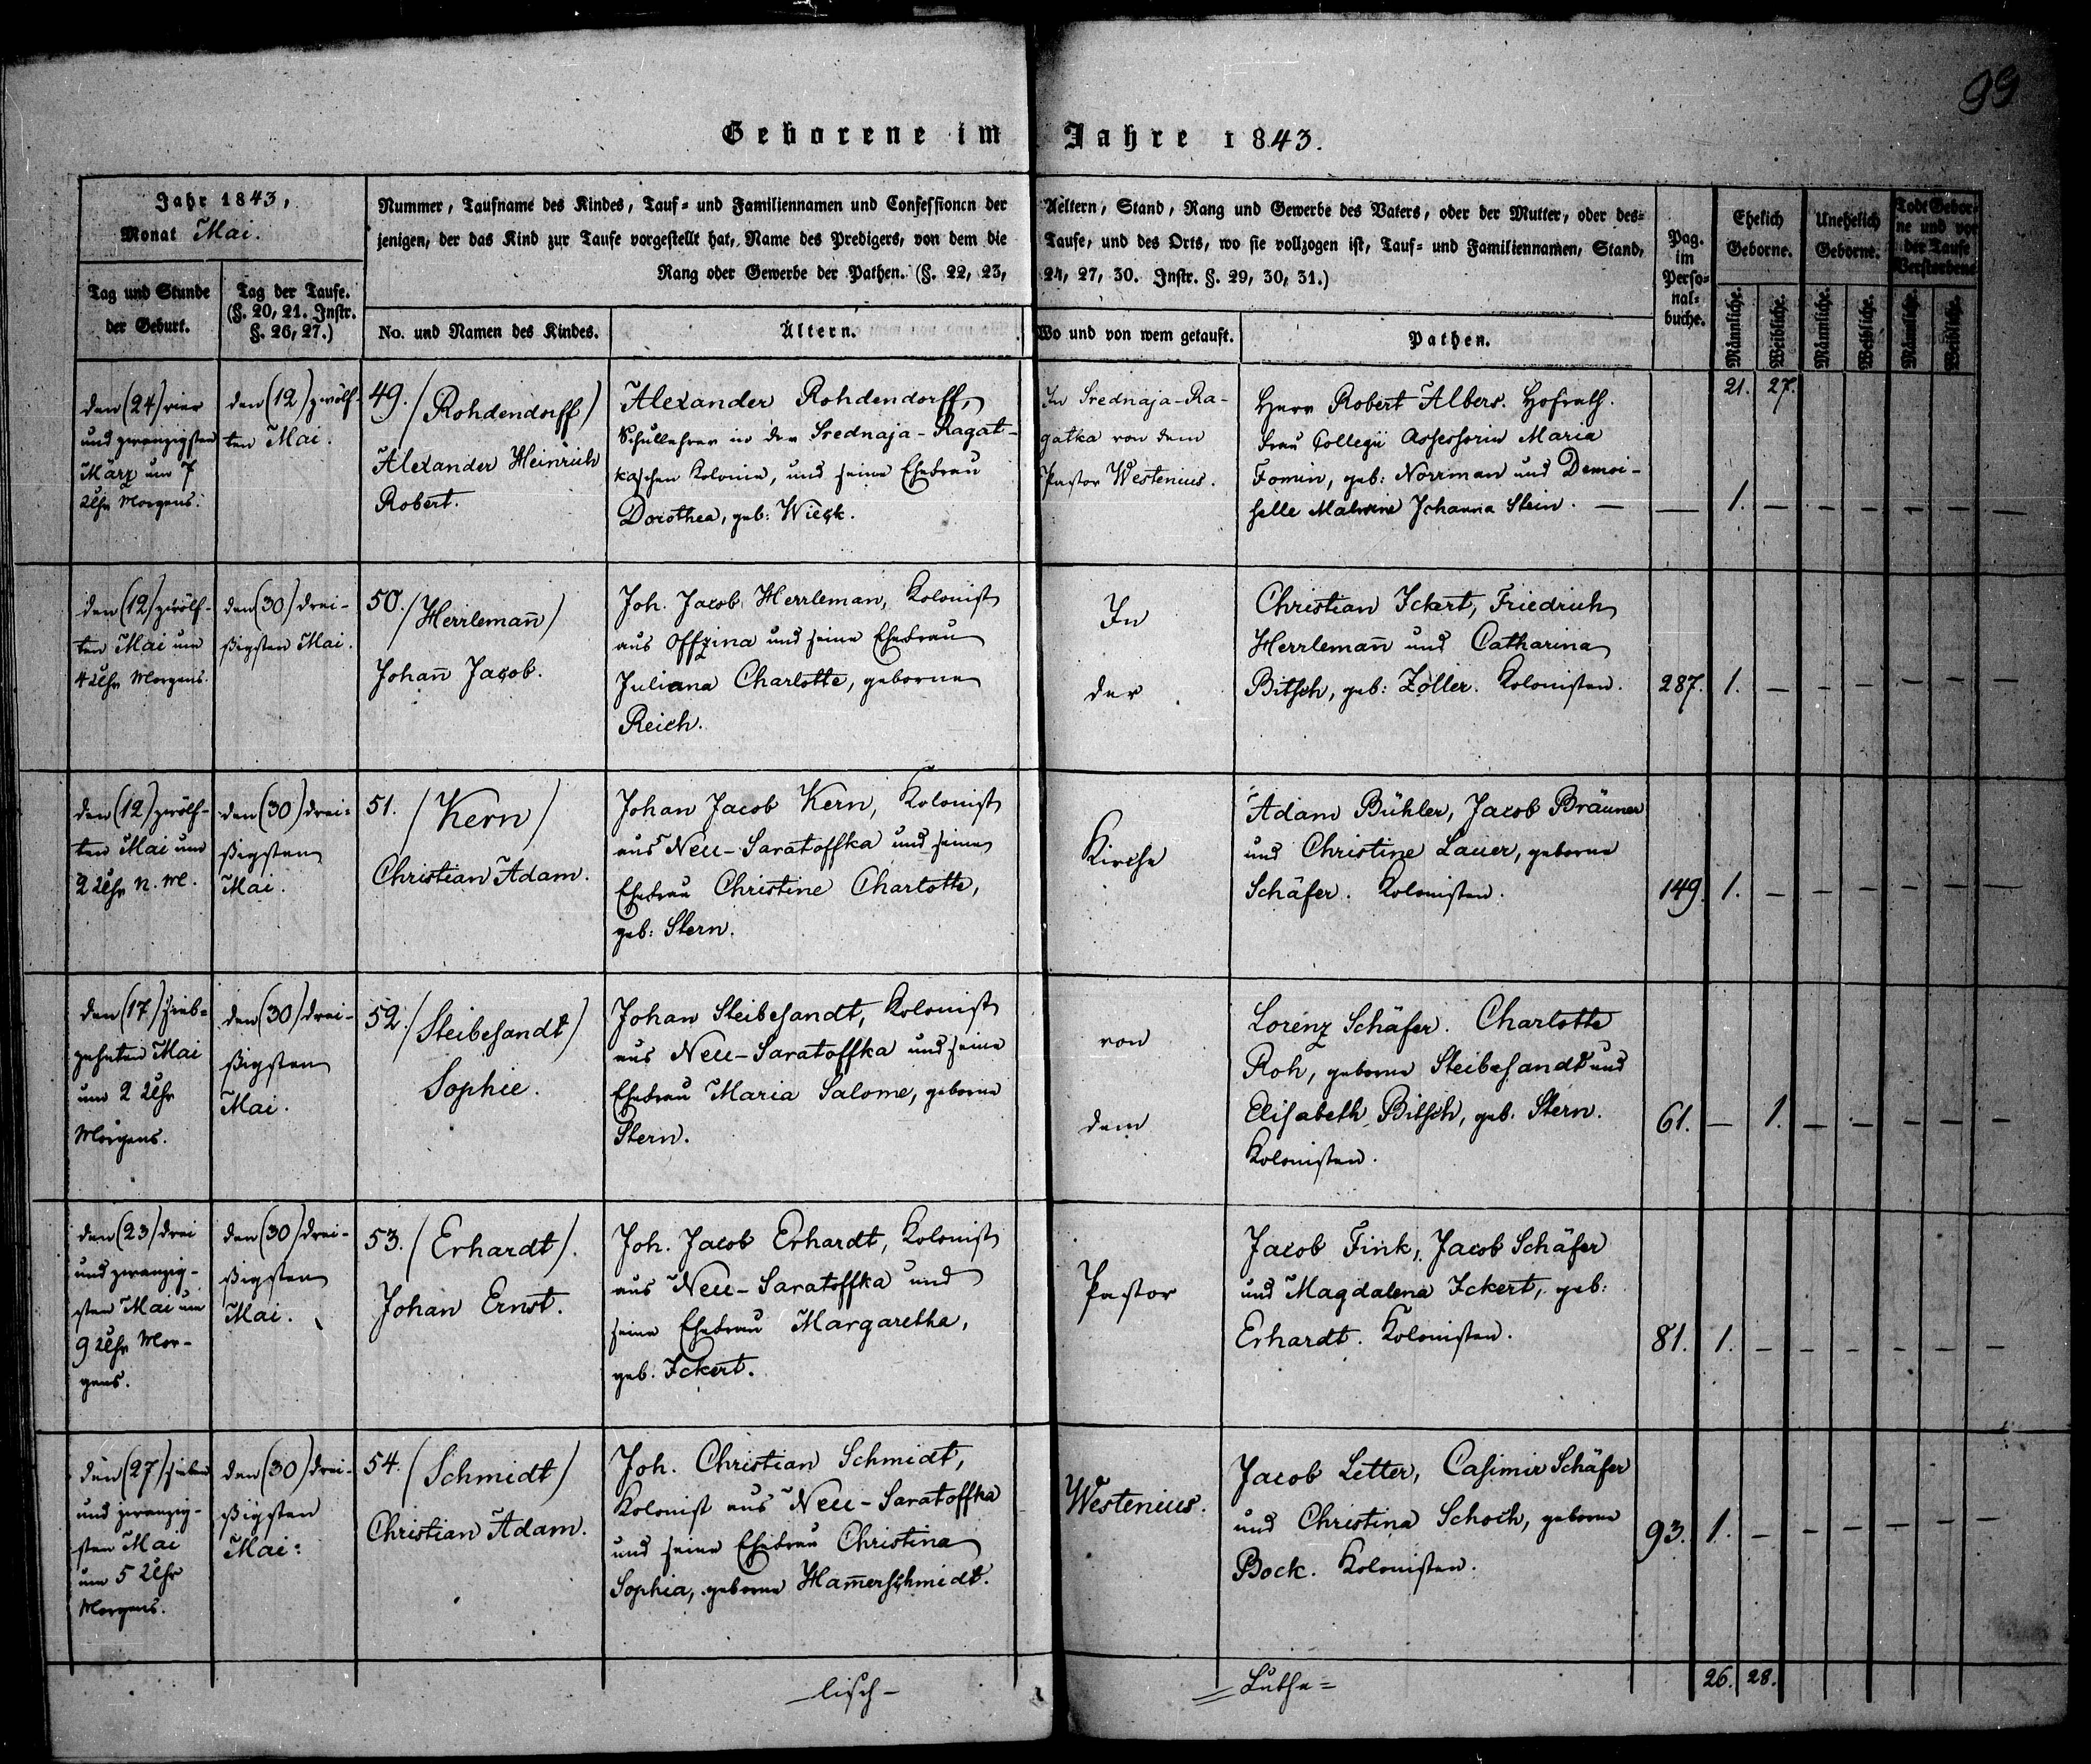 99
Geborene im Jahre 1843.
Jahr 1843,
Monat Mai.
Nummer, Taufname des Kindes, Tauf- und Familiennamen und Confessionen der Aeltern, Stand, Rang und Gewerbe des Vaters, oder der Mutter, oder des-
jenigen, der das Kind zur Taufe vorgestellt hat, Name des Predigers, von dem die Taufe, und des Orts, wo sie vollzogen ist, Tauf- und Familiennamen, Stand,
Rang oder Gewerbe der Pathen. (§. 22, 23, 24, 27, 30. Instr. §. 29, 30, 31.)
Pag.
im
Perso-
nal-
buche.
Ehelich
Geborne.
Unehelich
Geborne.
Todt Gebor-
ne und vor
der Taufe
Verstorbene
Tag und Stunde
der Geburt.
Tag der Taufe.
(§. 20, 21. Instr.
§. 26, 27.)
No. und Namen des Kindes.
Ältern.
Wo und von wem getauft.
Pathen.
Männliche.
Weibliche.
Männliche.
Weibliche.
Männliche.
Weibliche.
21. 27.
den (24) vier
und zwanzigsten
März um 7
Uhr Morgens.
den (12) zwölf-
ten Mai.
49. / Rohdendorff /
Alexander Heinrich
Robert.
Alexander Rohdendorff,
Schullehrer in der Srednaja-Ragat-
kaschen Kolonie, und seine Ehefrau
Dorothea, geb: Wieck.
In Srednaja-Ra-
gatka von dem
Pastor Westenius.
Herr Robert Albers. Hofrath.
Frau Collegii Assessorin Maria
Fomin, geb: Norrman und Demoi-
selle Malwine Johanna Stein. —
— 1. — — — — — —
den (12) zwölf-
ten Mai um
4 Uhr Morgens.
den (30) drei-
ßigsten Mai.
50. / Herrlemañ /
Johañ Jacob.
Joh. Jacob Herrleman, Kolonist
aus Offzina und seine Ehefrau
Juliana Charlotte, geborne
Reich.
In
der
Christian Ickert, Friedrich
Herrlemañ und Catharina
Bitsch, geb: Zoller. Kolonisten.
287. 1. — — — — — —
den (12) zwölf-
ten Mai um
2 Uhr N. M.
den (30) drei-
ßigsten
Mai.
51. / Kern /
Christian Adam.
Johan Jacob Kern, Kolonist
aus Neu-Saratoffka und seine
Ehefrau Christine Charlotte,
geb: Stern.
Kirche
Adam Bühler, Jacob Bräuner
und Christine Lauer, geborne
Schäfer. Kolonisten.
149. 1. — — — — — —
den (17) sieb-
zehnten Mai
um 2 Uhr
Morgens.
den (30) drei-
ßigsten
Mai.
52. / Steibesandt /
Sophie.
Johan Steibesandt, Kolonist
aus Neu-Saratoffka und seine
Ehefrau Maria Salome, geborne
Stern.
von
dem
Lorenz Schäfer. Charlotte
Roh, geborne Steibesandt und
Elisabeth Bitsch, geb. Stern.
Kolonisten.
61. — 1. — — — — —
den (23) drei
und zwanzig-
sten Mai um
9 Uhr Mor-
gens.
den (30) drei-
ßigsten
Mai.
53. / Erhardt /.
Johan Ernst.
Joh. Jacob Erhardt, Kolonist
aus Neu-Saratoffka und
seine Ehefrau Margaretha,
geb. Ickert.
Pastor
Jacob Fink, Jacob Schäfer
und Magdalena Ickert, geb:
Erhardt. Kolonisten.
81. 1. — — — — — —
den (27) sieben
und zwanzig-
sten Mai
um 5 Uhr
Morgens.
den (30) drei-
ßigsten
Mai:
54. / Schmidt /
Christian Adam.
Joh. Christian Schmidt,
Kolonist aus Neu-Saratoffka
und seine Ehefrau Christina
Sophia, geborne Ham̄erschmidt.
Westenius.
Jacob Letter, Casimir Schäfer
und Christina Schoch, geborne
Bock. Kolonisten.
93. 1. — — — — — —
—lisch—
= Luthe=
26. 28.